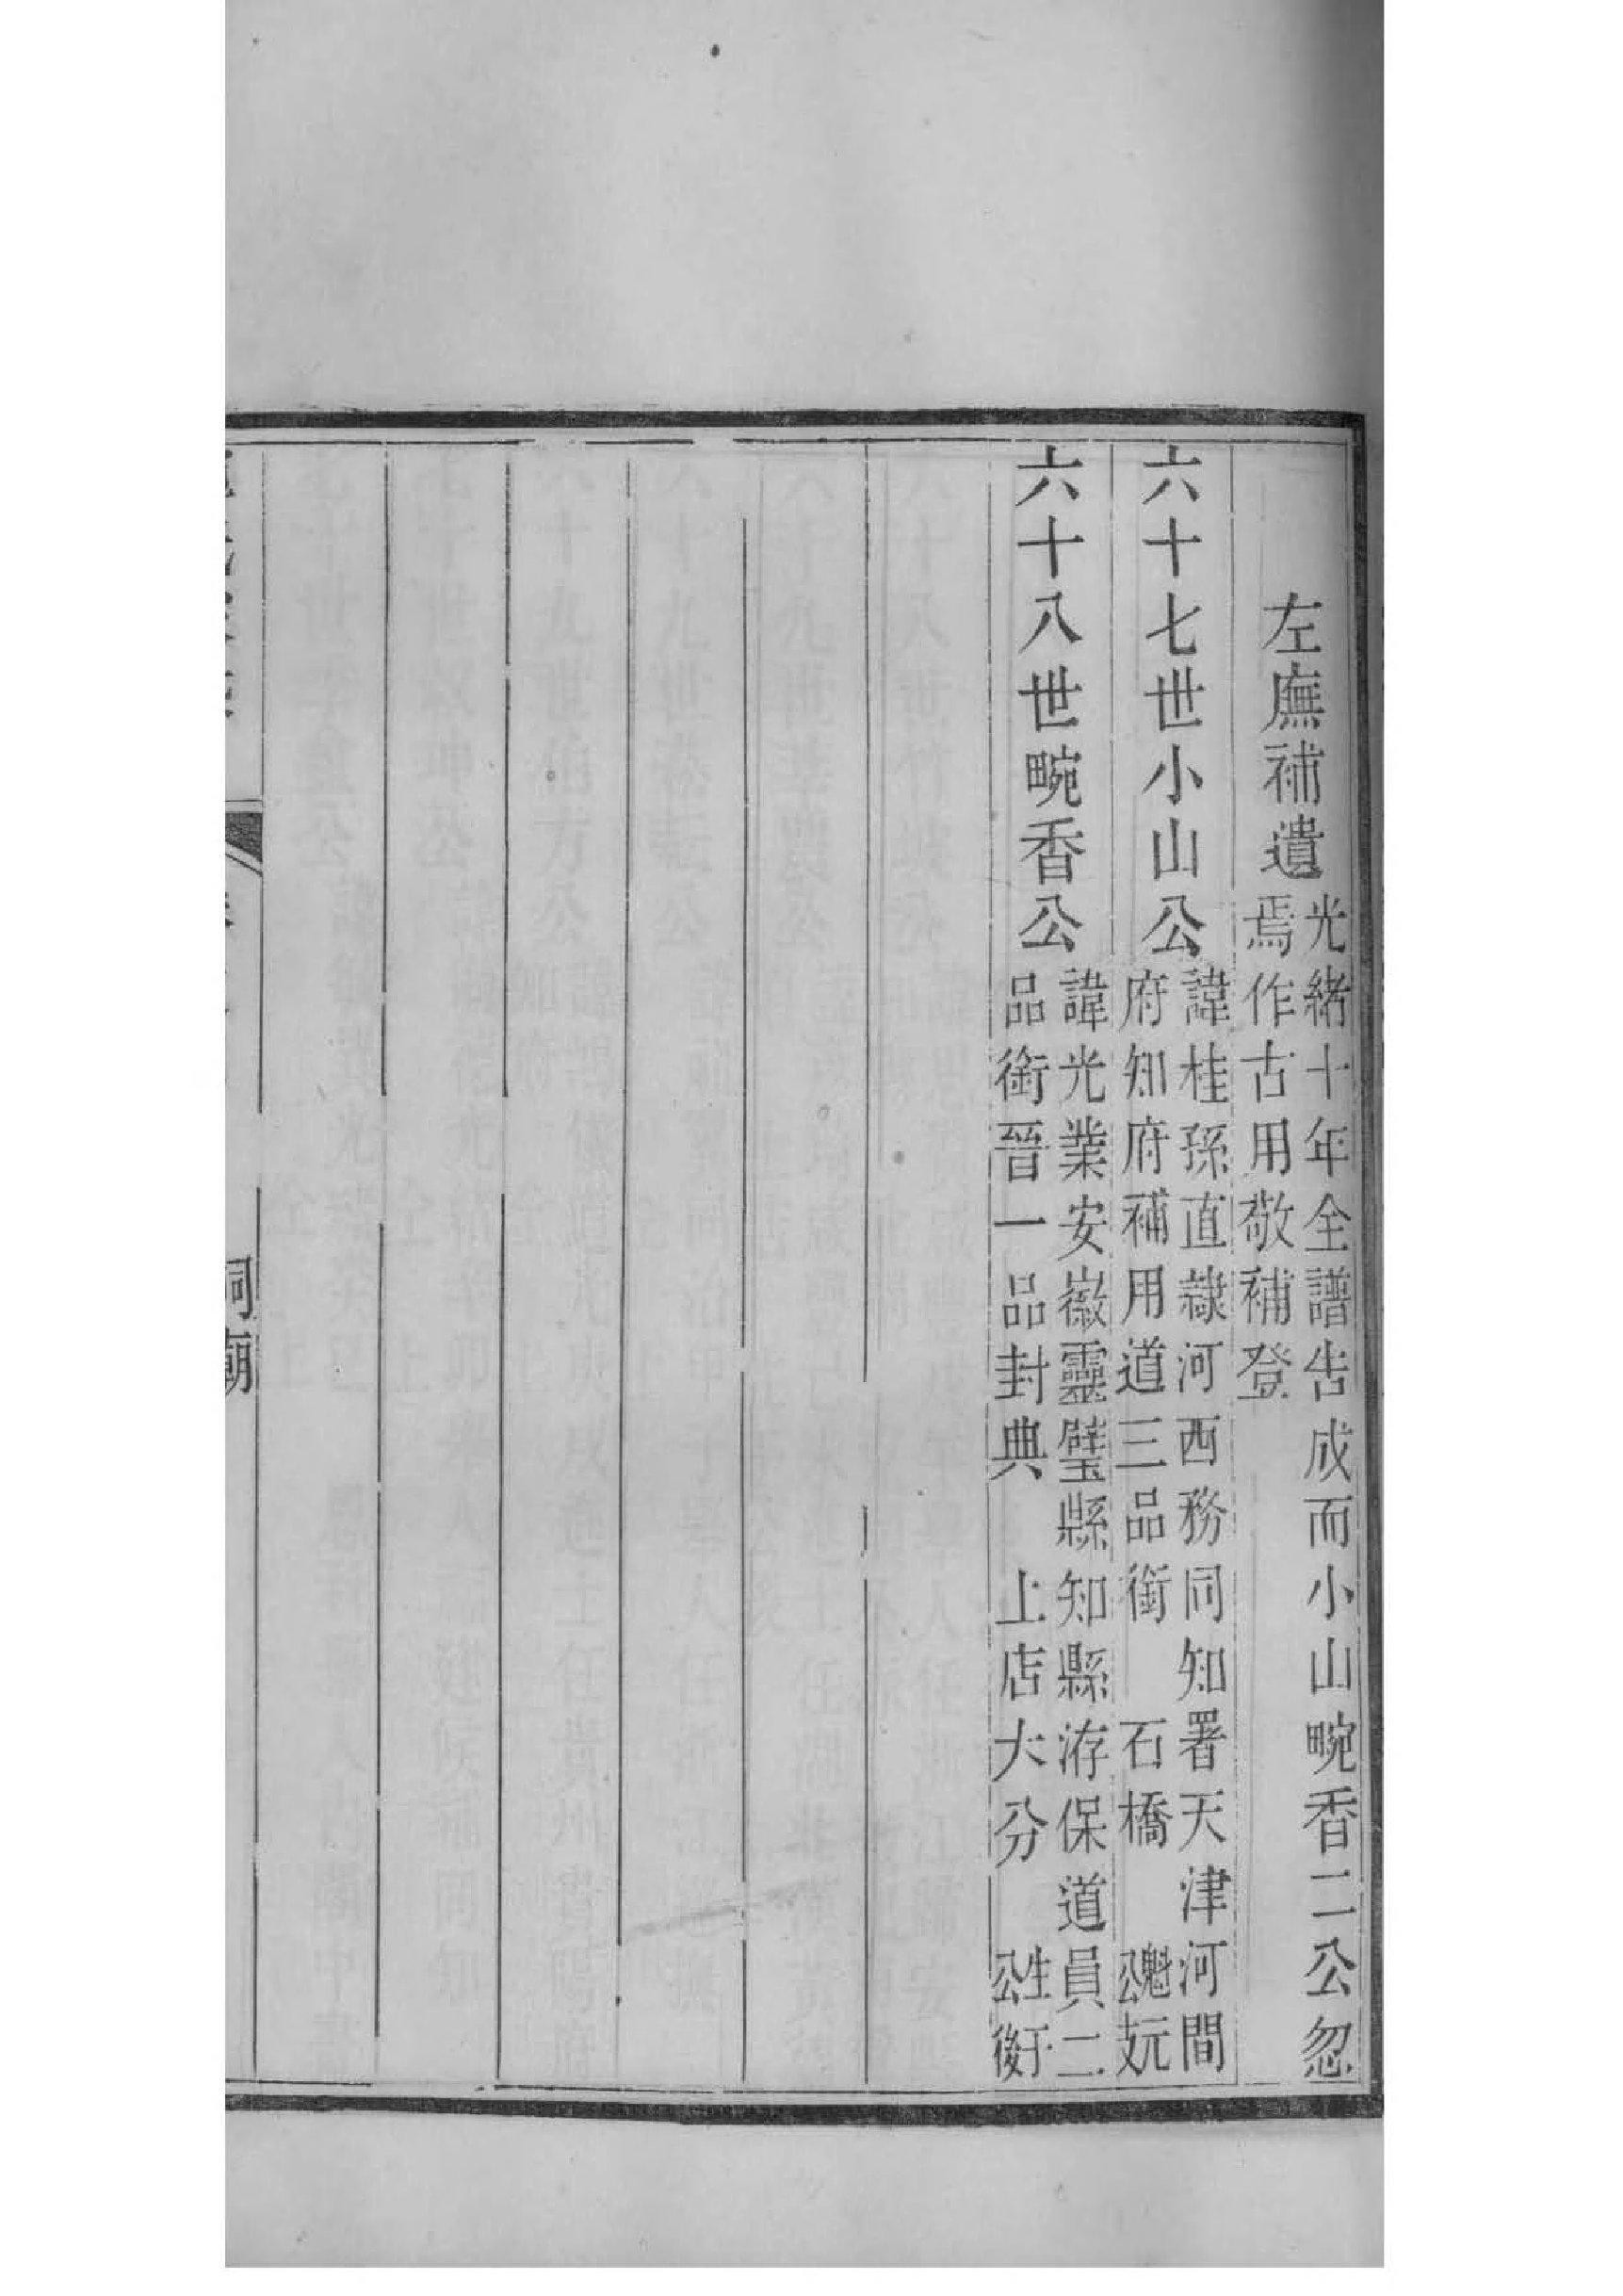 左廡補遺
光緒十年全譜告成而小山畹香二公忽
焉作古用敬補登
六十七世小山公
諱桂孫直隸河西務同知署天津河間
府知府補用道三品銜　石橋　魁元公支
六十八世畹香公
諱光業安徽靈璧縣知縣洊保道員二
品銜晉一品封典　上店大分　生于公後
祠廟